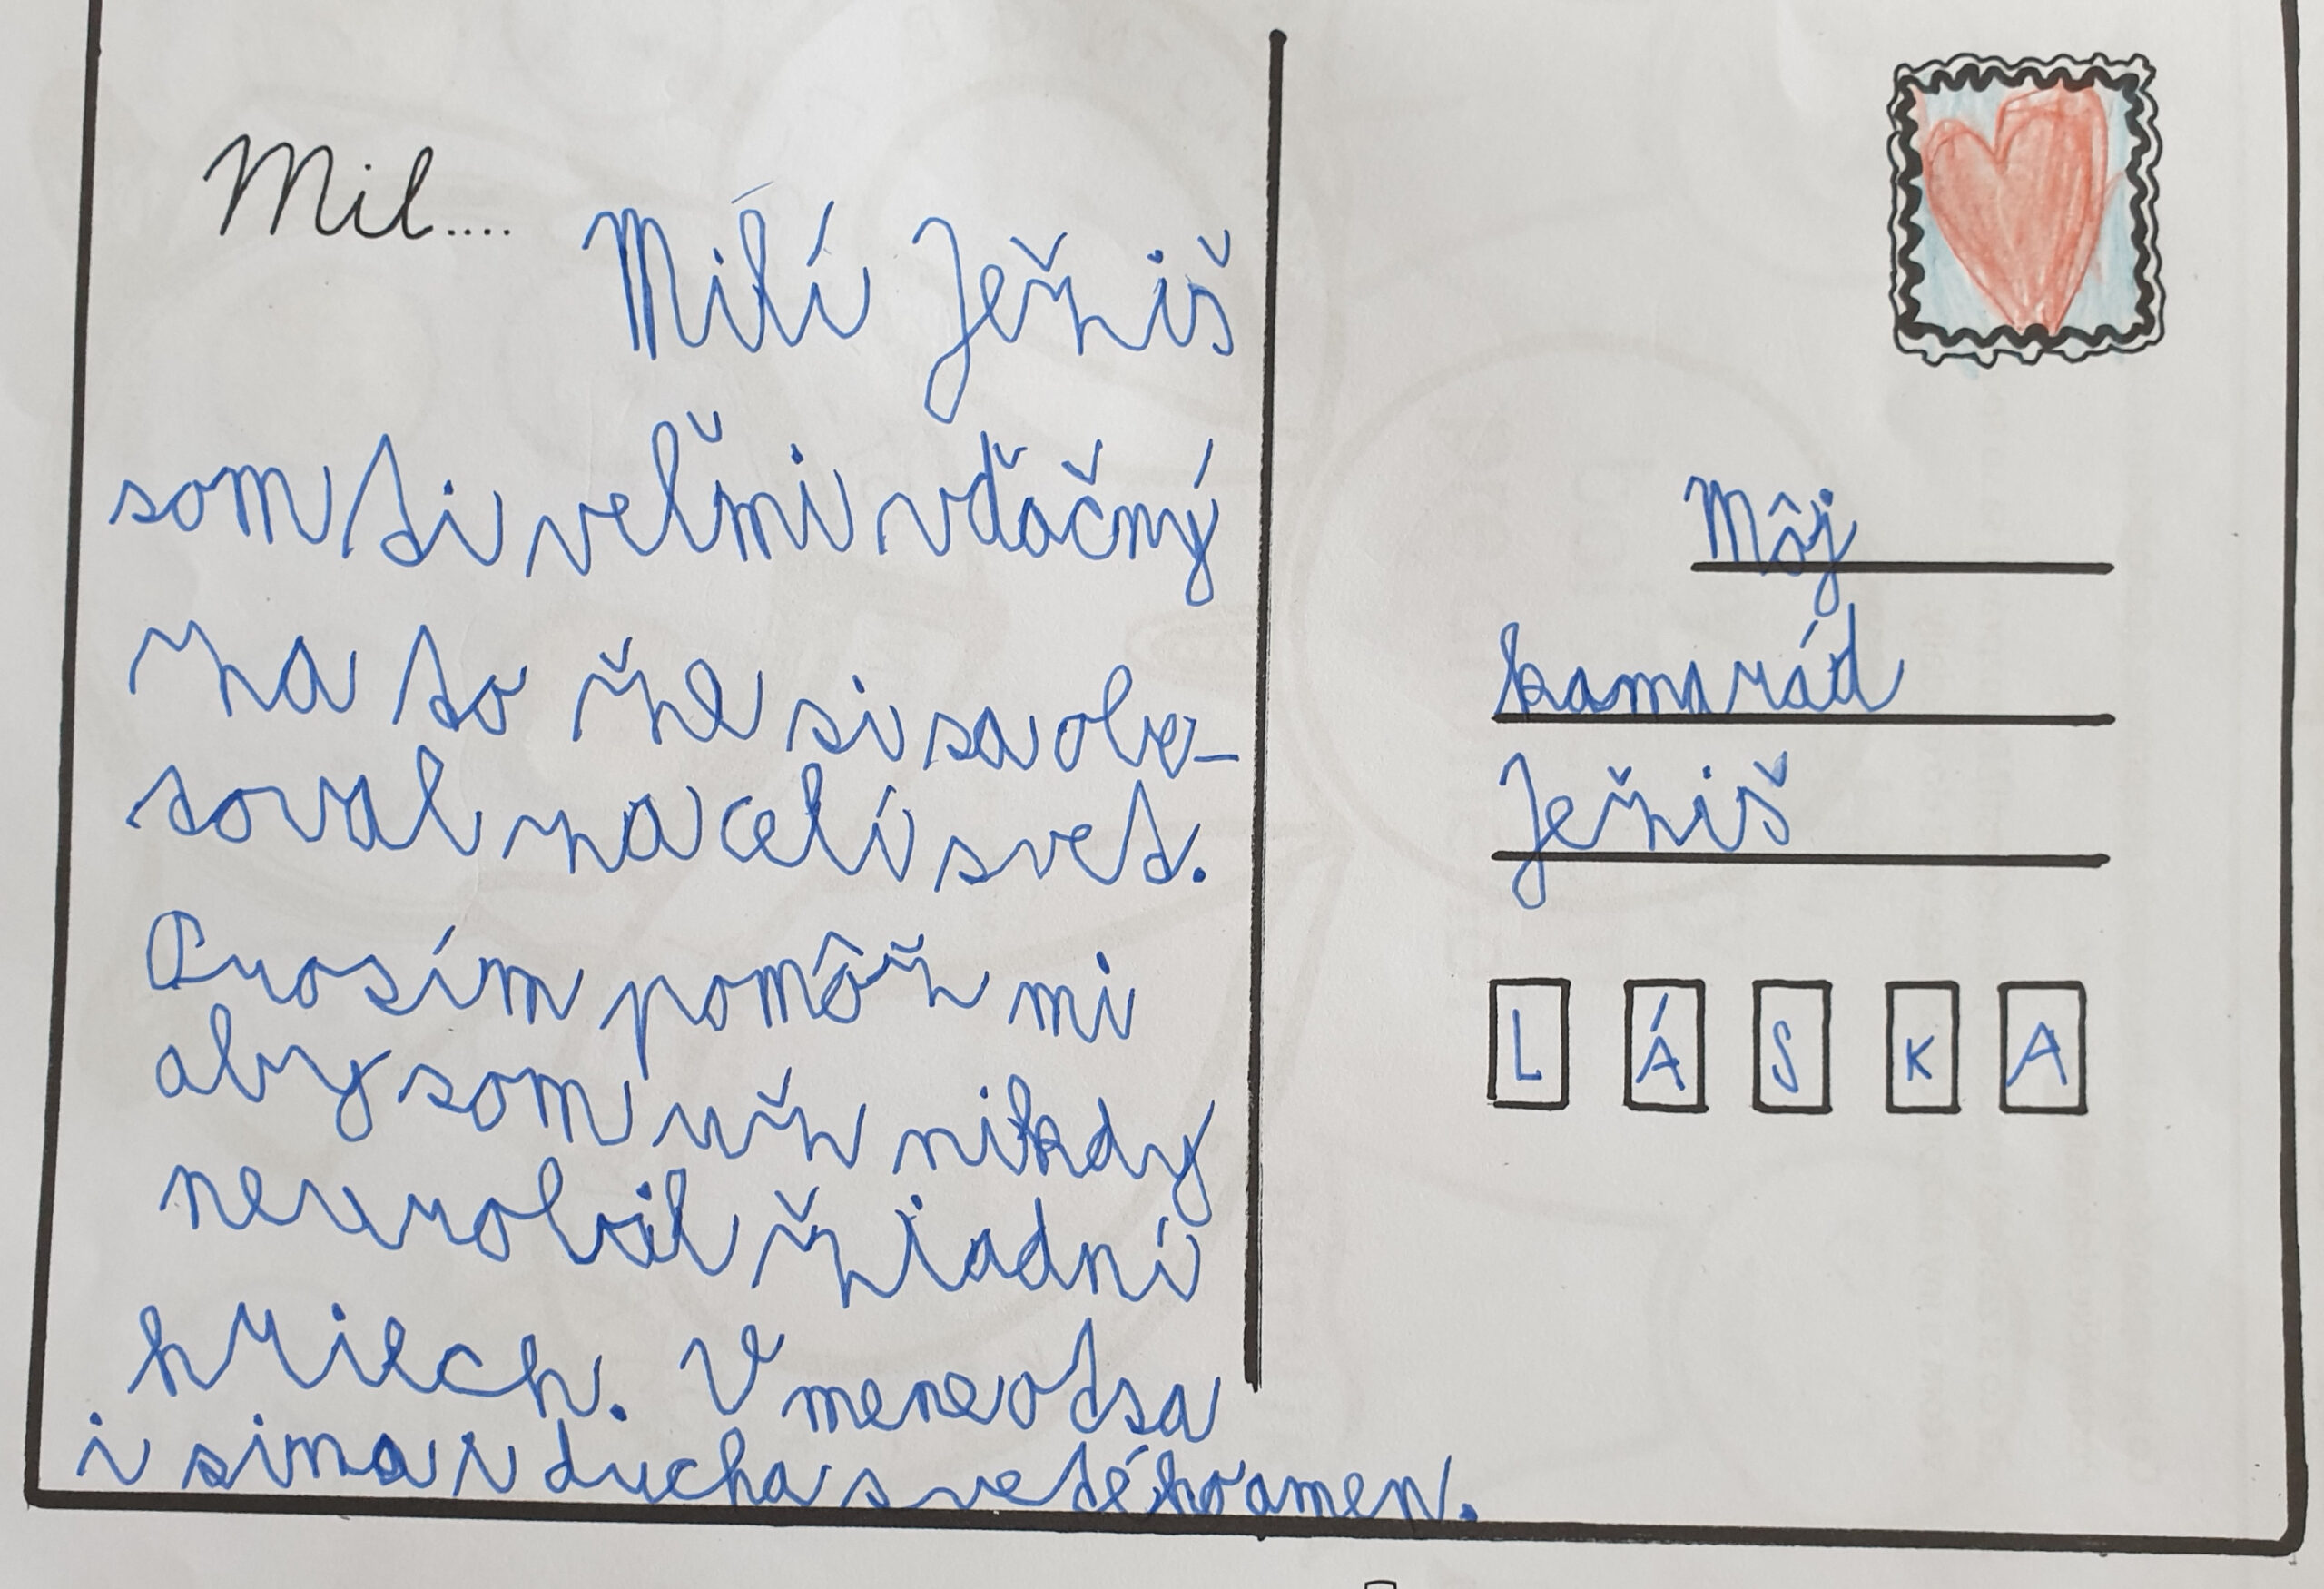 Mil....
Milí Ježiš
som ti veľmi vďačný
za to že si sa obe-
toval za celí svet.
Prosím pomôž mi
aby som už nikdy
neurobil žiadni
hriech. V mene otsa
i sina i ducha svetého amen.
Môj
kamarád
Ježiš
L Á S K A